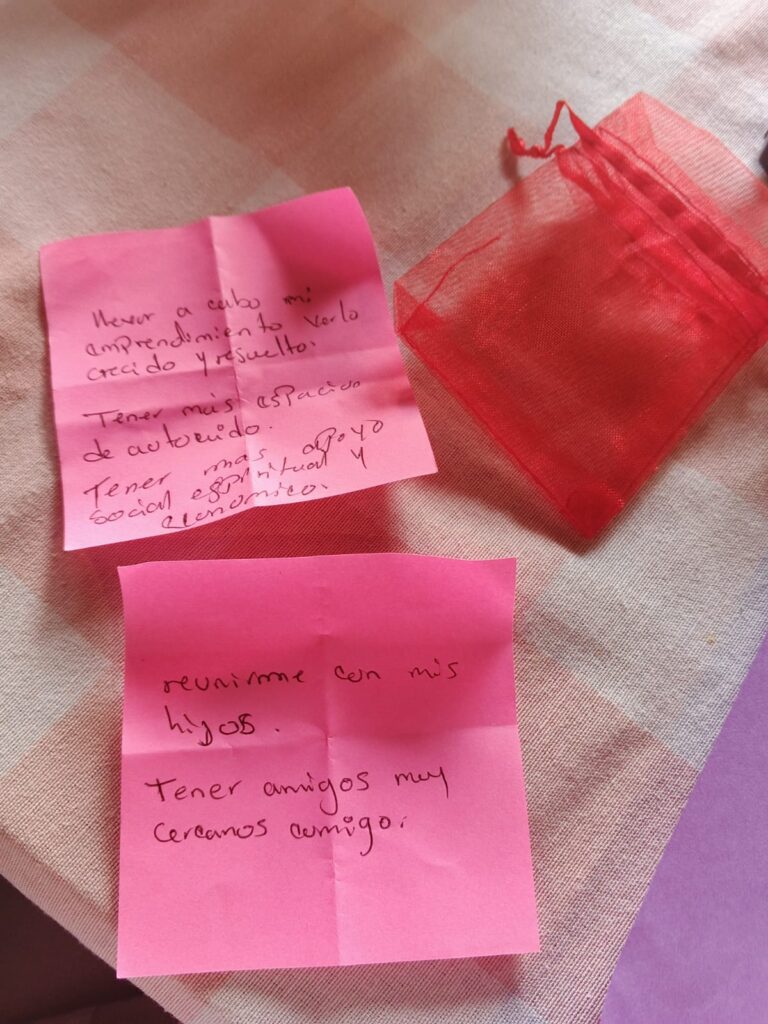 llevar a cabo mi
emprendimiento verlo
crecido y resuelto.
Tener más espacios
de autocuido.
Tener mas apoyo
social espiritual y
economico.
reunirme con mis
hijos.
Tener amigos muy
cercanos comigo.